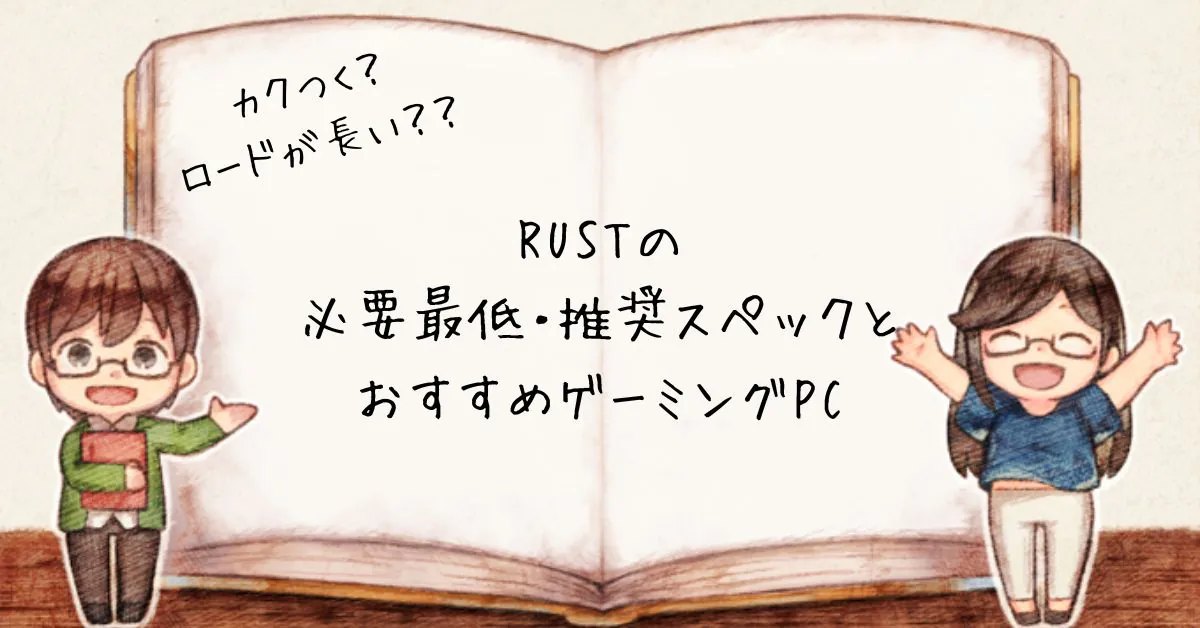 カクつく?
ロードが長い??
RUSTの
必要最低・推奨スペックと
おすすめゲーミングPC